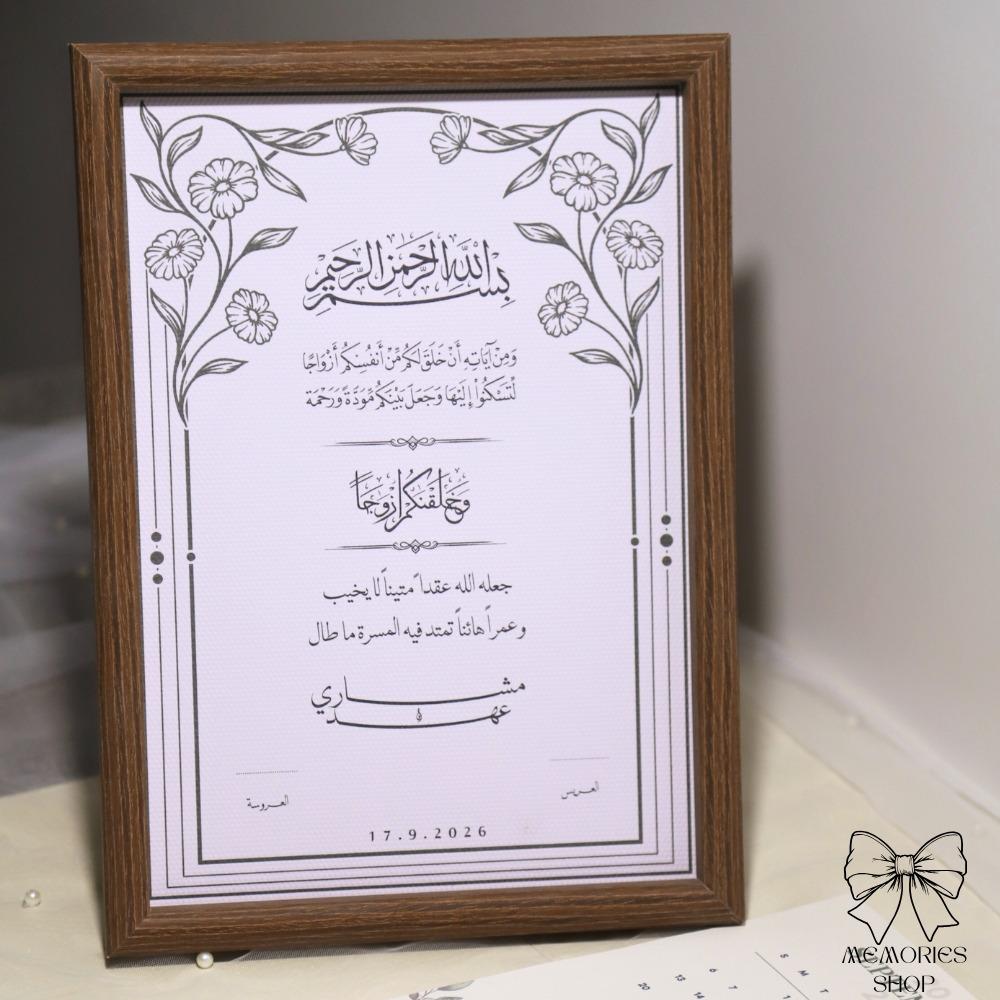 بسم الله الرحمن الرحيم
وَمِنْ آيَاتِهِ أَنْ خَلَقَ لَكُم مِّنْ أَنفُسِكُمْ أَزْوَاجًا
لِّتَسْكُنُوا إِلَيْهَا وَجَعَلَ بَيْنَكُم مَّوَدَّةً وَرَحْمَة
وَخَلَقْنَكُمْ أَزْوَجًا
جعله الله عقداً متيناً لا يخيب
وعمراً هانئاً تمتد فيه المسرة ما طال
مشاري
و
عهد
العريس
العروسة
17.9.2026
S M T
6
13
20
MEMORIES
SHOP